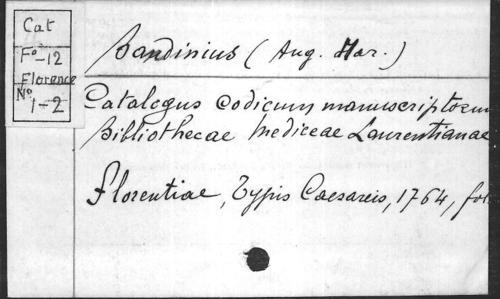 Cat
Fo-12
Florence
No 1-2
Bandinius (Ang. Mar.)
Catalogus codicum manuscriptorum
Bibliothecae Mediceae Laurentianae
Florentiae, Typis Caesareis, 1764, fol.